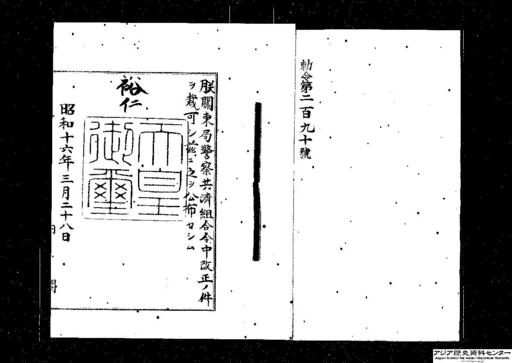 勅令第二百九十號
朕關東局警察共濟組合令中改正ノ件
ヲ裁可シ茲ニ之ヲ公布セシム
裕仁
天皇御璽
昭和十六年三月二十八日
アジア歴史資料センター
Japan Center for Asian Historical Records